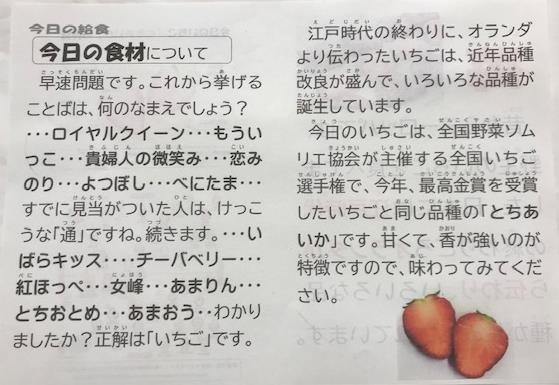 今日の給食
今日の食材について
早速問題です。これから挙げる
ことばは、何のなまえでしょう？
・・・ロイヤルクイーン・・・もうい
っこ・・・貴婦人の微笑み・・・恋み
のり・・・よつぼし・・・べにたま・・・
すでに見当がついた人は、けっこ
うな「通」ですね。続きます。・・・い
ばらキッス・・・・チーバベリー・・・
紅ほっぺ・・・女峰・・・あまりん・・・
とちおとめ・・・あまおう・・わかり
ましたか？正解は「いちご」です。
江戸時代の終わりに、オランダ
より伝わったいちごは、近年品種
改良が盛んで、いろいろな品種が
誕生しています。
今日のいちごは、全国野菜ソム
リエ協会が主催する全国いちご
選手権で、今年、最高金賞を受賞
したいちごと同じ品種の「とちあ
いか」です。甘くて、香が強いのが
特徴ですので、味わってみてくだ
さい。